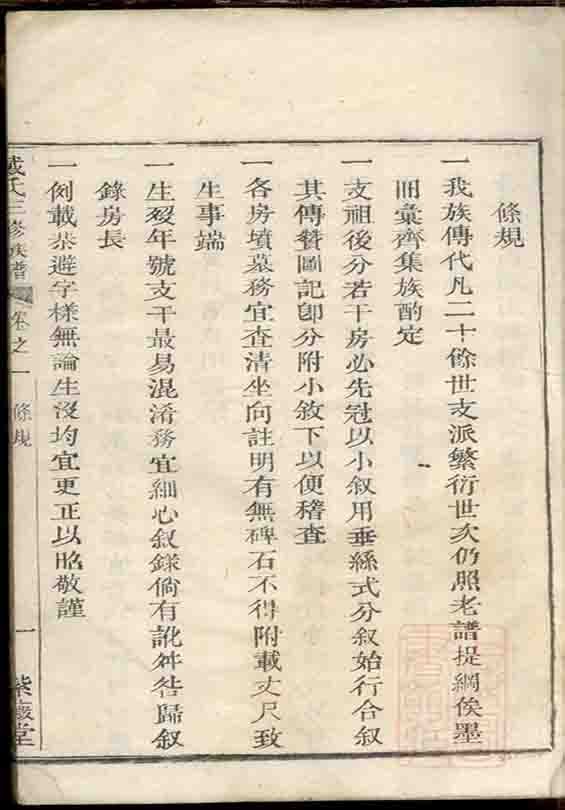 條規
一我族傳代凡二十餘世支派繁衍世次仍照老譜提綱俟墨
冊彙齊集族酌定
一支祖後分若干房必先冠以小叙用垂絲式分叙始行合叙
其傳贊圖記卽分附小敘下以便稽查
一各房墳墓務宜查清坐向註明有無碑石不得附載丈尺致
生事端
一生殁年號支干最易混淆務宜細心叙錄倘有訛舛咎歸叙
錄房長
一例載恭避字樣無論生沒均宜更正以昭敬謹
戴氏三修族譜 卷之一 條規 一 紫巖堂